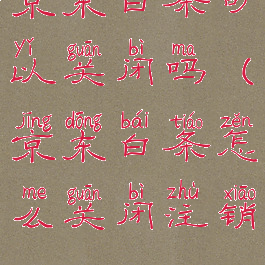 京东白条可
yǐ guān bì ma
以关闭吗（
jīng dōng bái tiáo zěn
京东白条怎
me guān bì zhù xiāo
么关闭注销